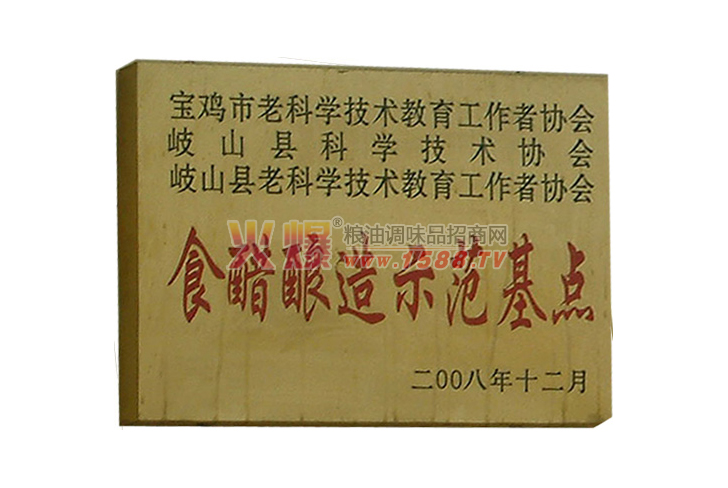 宝鸡市老科学技术教育工作者协会
岐山县科学技术协会
岐山县老科学技术教育工作者协会
火爆®粮油调味品招商网
www.1588.TV
食醋酿造示范基点
二00八年十二月